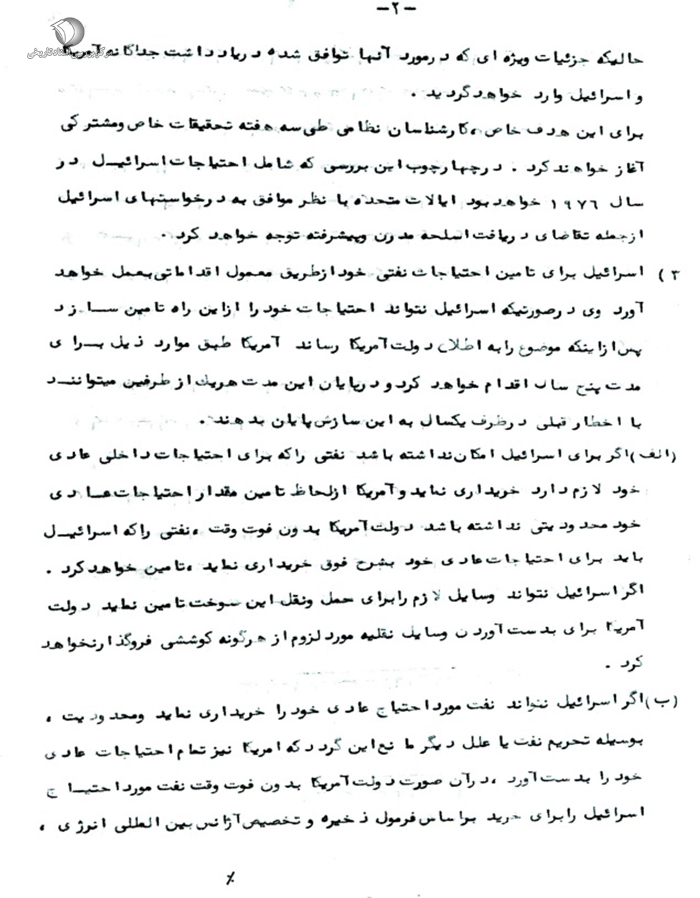 -۲-
مرکز بررسی اسناد تاریخی
حالیکه جزئیات ویژه ای که درمورد آنها توافق شده دریادداشت جداگانه آمریکا
واسرائیل وارد خواهدگردید .
برای این هدف خاص ،کارشناسان نظامی طی سه هفته تحقیقات خاص ومشترکی
آغاز خواهندکرد . درچهارچوب این بررسی که شامل احتیاجات اسرائیل در
سال ۱۹۷۶ خواهدبود ایالات متحده با نظر موافق به درخواستهای اسرائیل
ازجمله تقاضای دریافت اسلحه مدرن وپیشرفته توجه خواهد کرد .
۳) اسرائیل برای تامین احتیاجات نفتی خودازطریق معمول اقداماتی بعمل خواهد
آورد وی درصورتیکه اسرائیل نتواند احتیاجات خودرا ازاین راه تامین سازد
پس ازاینکه موضوع رابه اطلاع دولت آمریکا رساند آمریکا طبق موارد ذیل برای
مدت پنج سال اقدام خواهد کرد و درپایان این مدت هریک از طرفین میتوانند
با اخطار قبلی درظرف یکسال به این سازش پایان بدهند .
(الف) اگر برای اسرائیل امکان نداشته باشد نفتی راکه برای احتیاجات داخلی عادی
خود لازم دارد خریداری نماید وآمریکا ازلحاظ تامین مقدار احتیاجات عادی
خود محدودیتی نداشته باشد دولت آمریکا بدون فوت وقت ،نفتی راکه اسرائیل
باید برای احتیاجات عادی خود بشرح فوق خریداری نماید ،تامین خواهدکرد .
اگر اسرائیل نتواند وسایل لازم رابرای حمل ونقل این سوخت تامین نماید دولت
آمریکا برای بدست آوردن وسایل نقلیه موردلزوم از هرگونه کوششی فروگذارنخواهد
کرد .
(ب) اگر اسرائیل نتواند نفت مورداحتیاج عادی خودرا خریداری نماید ومحدودیت ،
بوسیله تحریم نفت یا علل دیگر مانع این گردد که امریکا نیز تمام احتیاجات عادی
خودرا بدست آورد ،درآن صورت دولت آمریکا بدون فوت وقت نفت مورداحتیاج
اسرائیل رابرای خرید براساس فرمول ذخیره و تخصیص آژانس بین المللی انرژی ،